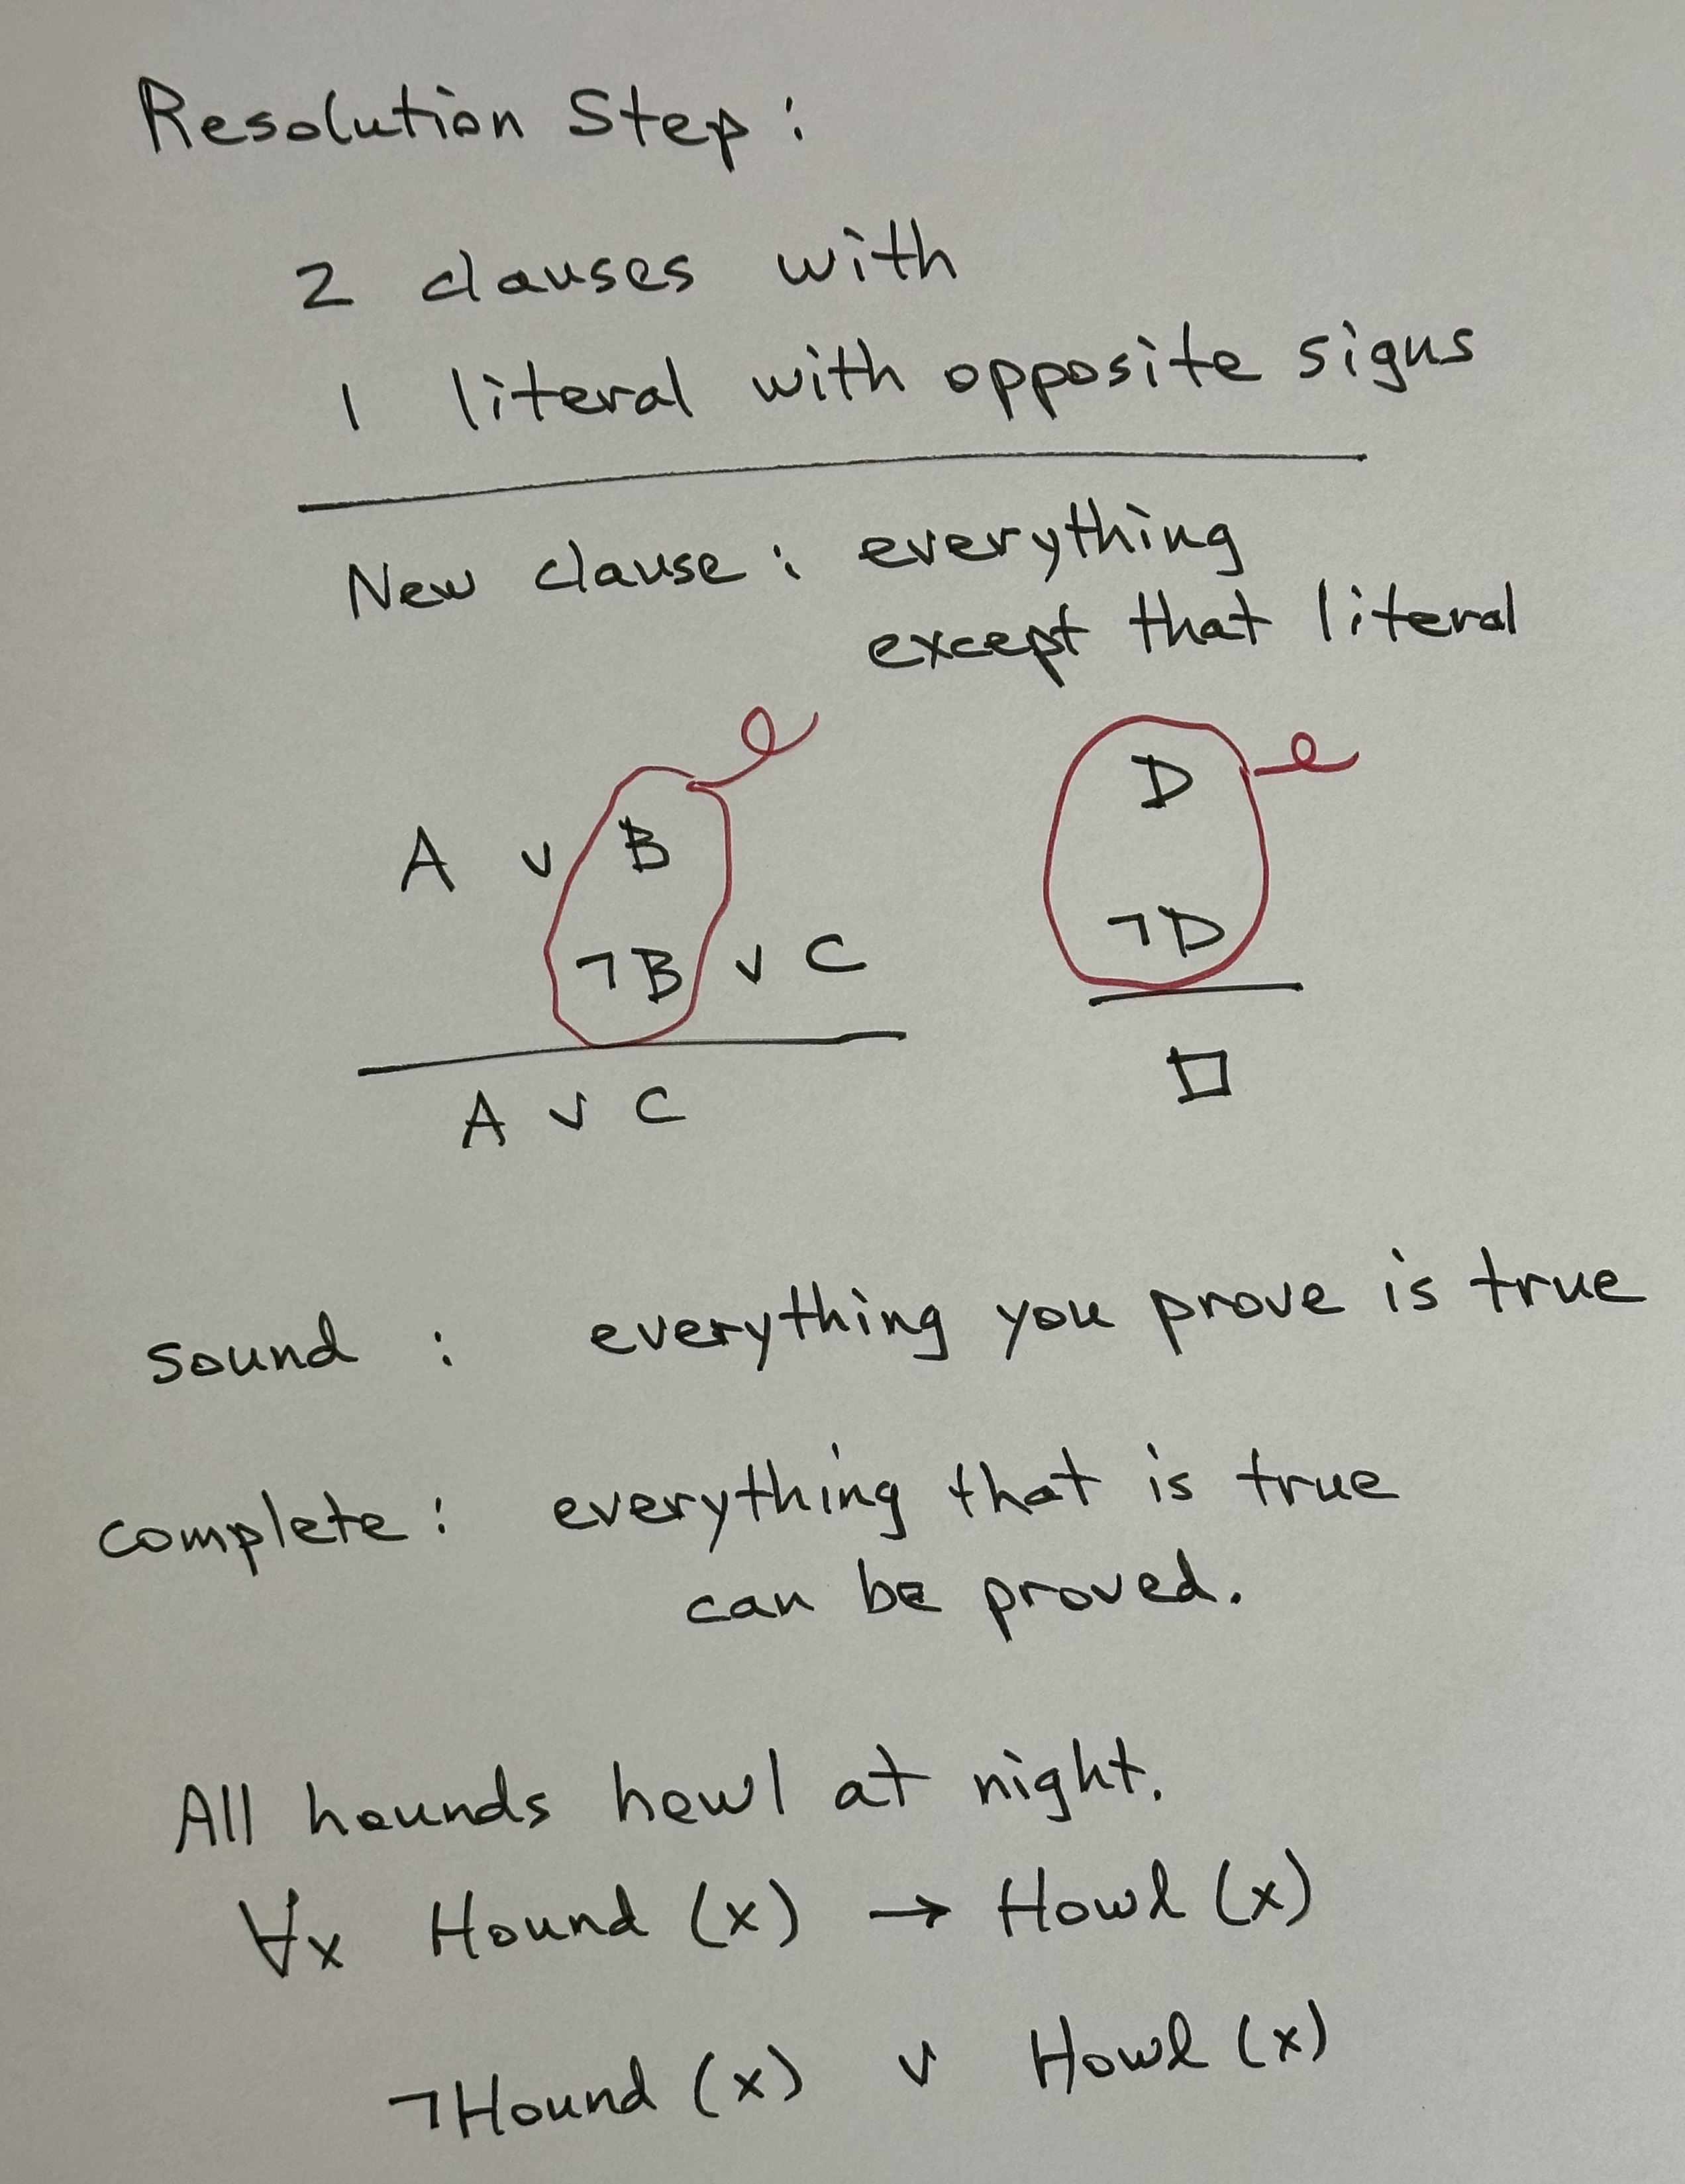 Resolution Step :
2 clauses with
1 literal with opposite signs
New clause : everything
except that literal
A ∨ B
¬B ∨ C
A ∨ C
D
¬D
□
sound : everything you prove is true
complete : everything that is true
can be proved.
All hounds howl at night.
∀x Hound (x) → Howl (x)
¬Hound (x) ∨ Howl (x)